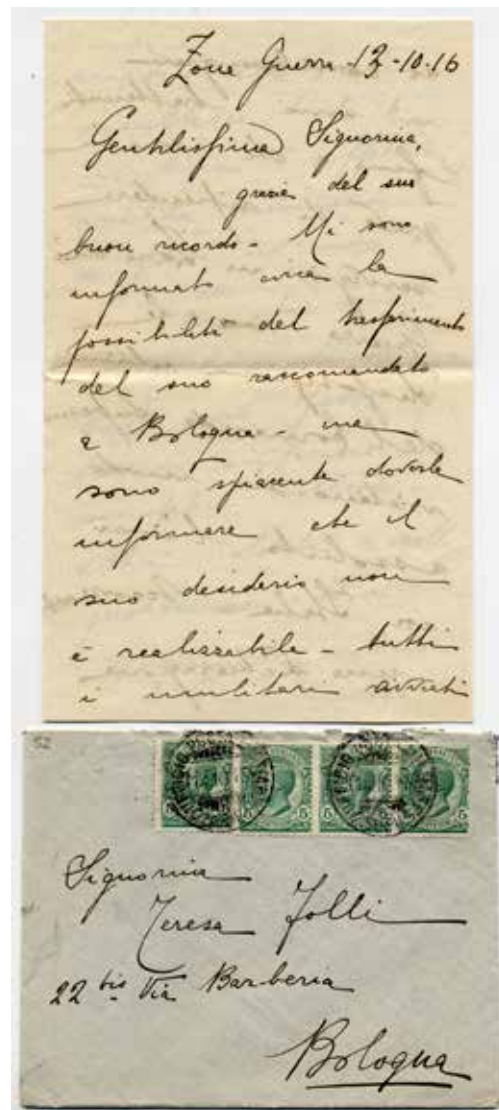 Zona Guerra - 13-10-16
Gentilissima Signorina,
grazie del suo
buon ricordo - Mi sono
informato circa la
possibilità del trasferimento
del suo raccomandato
a Bologna - ma
sono spiacente doverla
informare che il
suo desiderio non
è realizzabile - tutti
i militari avviati
5 5 5 5
Signorina
Teresa Folli
22 bis Via Barberia
Bologna